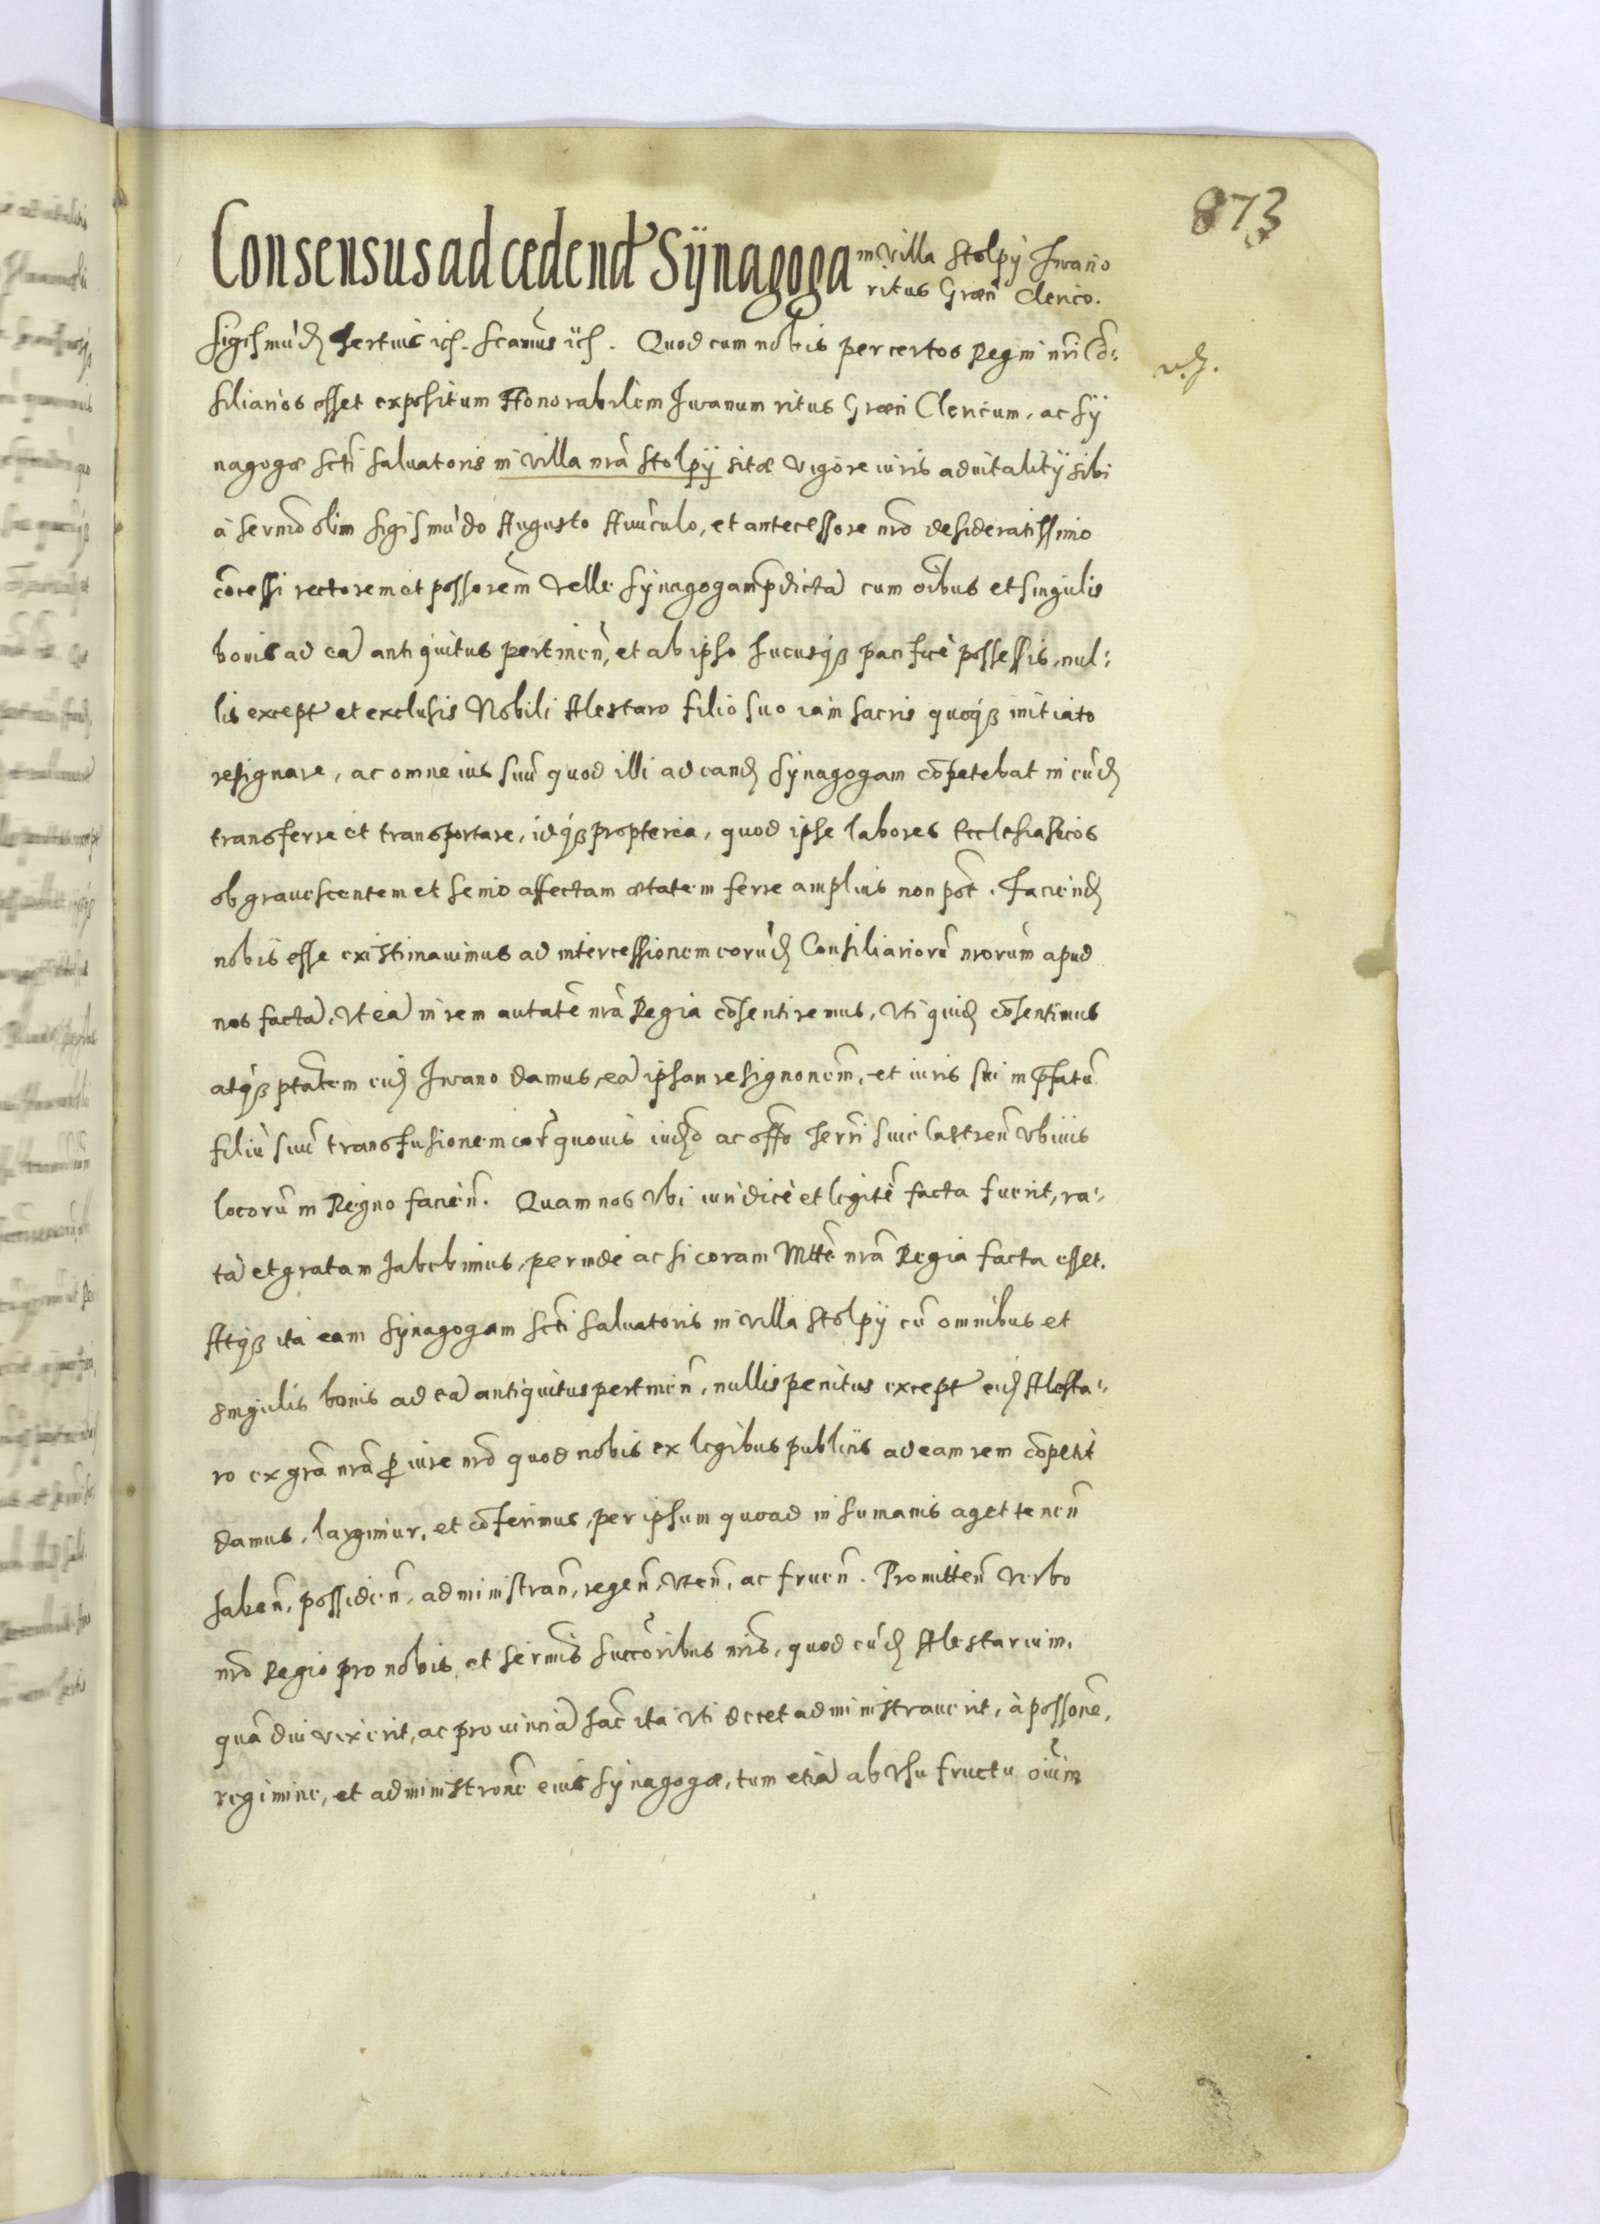 873
Consensus ad cedend Sÿnagoga in Villa Stolpÿ Iwano
ritus Græci Clerico.
Sigismu͂d Tertius ich. Scamus ich. Quod cum nobis per certos Regni nri Co͂:
siliarios esset expositum Honorabilem Iwanum ritus Græci Clericum, ac Sÿ
nagogæ Scti Saluatoris in Villa nra͂ Stolpÿ sitæ vigore iuris aduitalitÿ sibi
à Sermo olim Sigismu͂do Augusto Auu͂culo, et antecessore nro͂ desideratissimo
co͂cessi rectorem et possorem͂ Velle Sÿnagogam p͂dicta͂ cum oi͂bus et singulis
bonis ad ea͂ antiquitus pertinen͂, et ab ipso hucusq3 pacificè possessis, nul:
lis except et exclusis Nobili Alestaro filio suo iam sacris quoq3 initiato
resignare, ac omne ius suu͂ quod illi ad eand Sÿnagogam co͂petebat in eu͂d
transferre et transportare, idq3 propterea, quod ipse labores Ecclesiasticos
ob grauescentem et senio affectam ætatem ferre amplius non pot͂. Faciend
nobis esse existimauimus ad intercessionem eoru͂d Consiliarioru͂ nrorum͂ apud
nos facta͂, vt ea͂ in rem autate͂ nra͂ Regia co͂sentiremus, vti quid co͂sentimus
atq3 ptatem͂ eid Iwano damus, ea͂ ipsam resignonem͂, et iuris sui in p͂fatu͂
filiu͂ suu͂ transfusionem cor͂ quouis iud͂o ac offo͂ Terri͂ siue Castren͂ vbiuis
locoru͂ in Regno facien͂. Quam nos vbi iuridicè et legitè facta fuerit, ra:
ta͂ et gratam habebimus, perinde ac si coram Mtte͂ nra͂ Regia facta esset.
Atq3 ita eam Sÿnagogam Scti͂ Saluatoris in Villa Stolpÿ cu͂ omnibus et
singulis bonis ad ea͂ antiquitus pertinen͂, nullis penitus except eid Alesta:
ro ex gra͂ nra͂ p iure nro͂ quod nobis ex legibus publicis ad eam rem co͂petit
damus, largimur, et co͂ferimus, per ipsum quoad in humanis aget tenen͂
haben͂, possiden͂, administran͂, regen͂, vten͂, ac fruen͂. Promitten͂ verbo
nro͂ Regio pro nobis et Sermis͂ Succoribus͂ nris͂, quod eu͂d Alestarium,
qua͂diu vixerit, ac prouincia͂ hac͂ ita vti decet administrauerit, à possone͂,
regimine, et administrone͂ eius Sÿnagogæ, tum etia͂ ab vsu fructu oi͂um